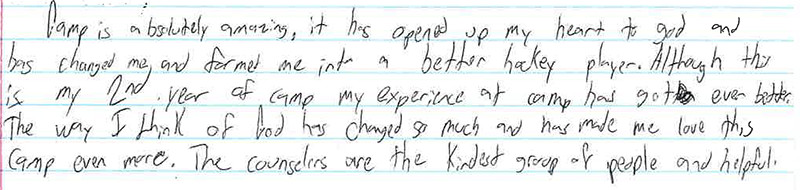 Camp is absolutely amazing, it has opened up my heart to god and
has changed me, and formed me into a better hockey player. Although this
is my 2nd year at camp my experience at camp has gotten even better.
The way I think of God has changed so much and has made me love this
camp even more. The counselers are the kindest group of people and helpful.